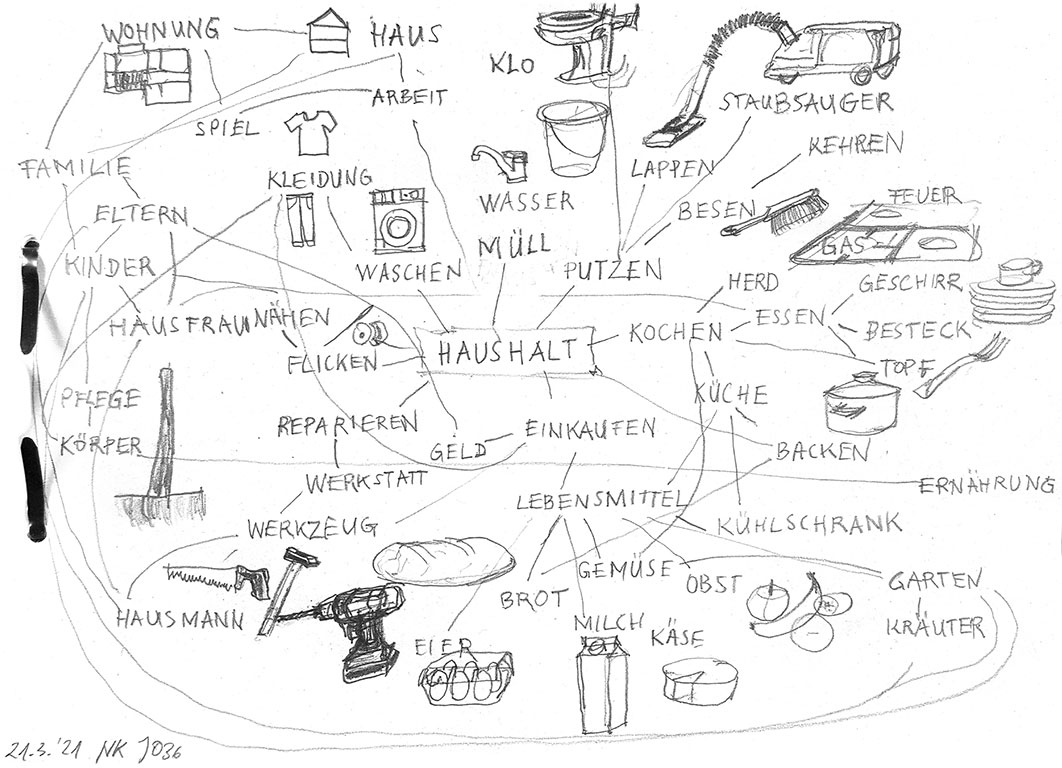 WOHNUNG
HAUS
KLO
ARBEIT
STAUBSAUGER
SPIEL
KEHREN
FAMILIE
LAPPEN
KLEIDUNG
WASSER
BESEN
FEUER
ELTERN
MÜLL
GAS
KINDER
WASCHEN
PUTZEN
HERD
GESCHIRR
HAUSFRAU
NÄHEN
ESSEN
BESTECK
KOCHEN
HAUSHALT
FLICKEN
TOPF
PFLEGE
KÜCHE
REPARIEREN
EINKAUFEN
KÖRPER
GELD
BACKEN
WERKSTATT
ERNÄHRUNG
LEBENSMITTEL
WERKZEUG
KÜHLSCHRANK
GEMÜSE
OBST
GARTEN
BROT
HAUSMANN
MILCH
KÄSE
KRÄUTER
EIER
21.3.'21 NK J036